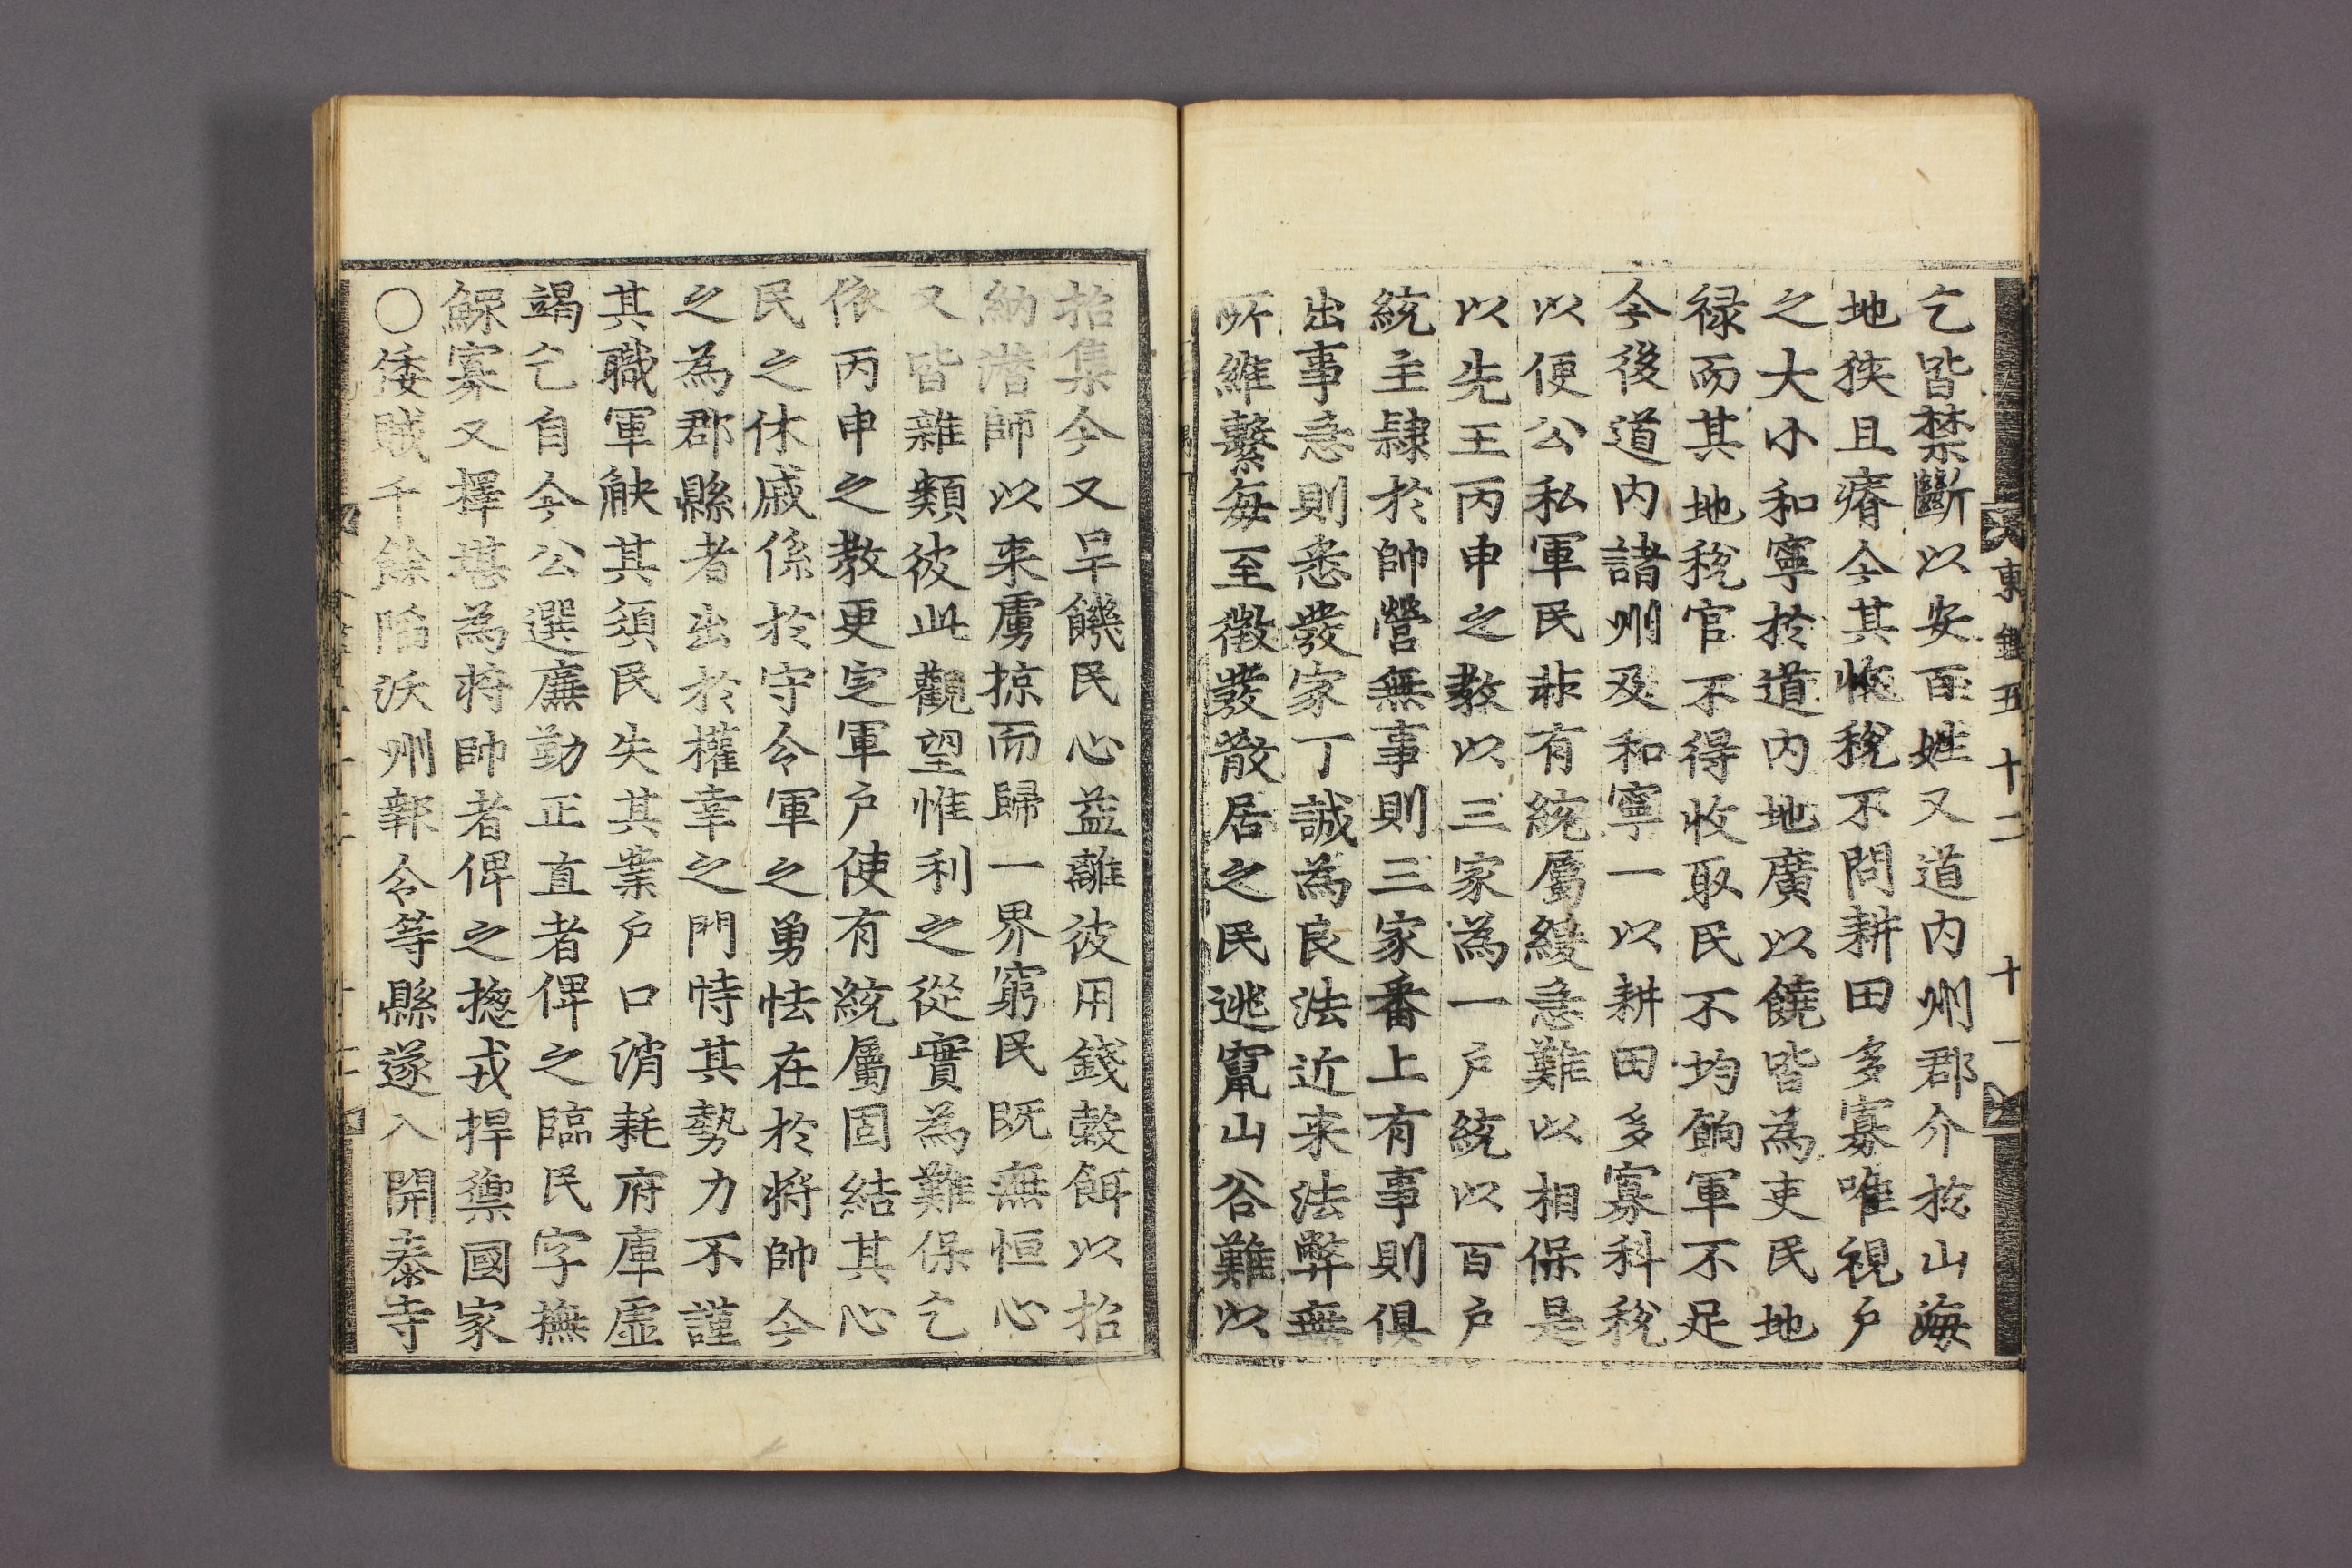 東鑑五十二 十一
乞皆禁斷以安百姓又道内州郡介於山海
地狹且瘠今其收稅不問耕田多寡唯視戶
之大小和寧於道内地廣以饒皆為吏民地
禄而其地稅官不得收取民不均餉軍不足
今後道内諸州及和寧一以耕田多寡科稅
以便公私軍民非有統屬緩急難以相保是
以先王丙申之敎以三家為一戶統以百戶
統主隷於帥營無事則三家番上有事則俱
出事急則悉發家丁誠為良法近来法弊無
所維繫每至徵發散居之民逃竄山谷難以
招集今又旱饑民心益離彼用錢穀餌以招
納潜師以来虜掠而歸一界窮民既無恒心
又皆雜類彼此觀望惟利之從實為難保乞
依丙申之敎更定軍戶使有統屬固結其心
民之休戚係於守令軍之勇怯在於將帥今
之為郡縣者出於權幸之門恃其勢力不謹
其職軍觖其須民失其業戶口消耗府庫虛
竭乞自今公選廉勤正直者俾之臨民字撫
鰥寡又擇堪為將帥者俾之捴戎捍禦國家
○倭賊千餘陷沃州報令等縣遂入開泰寺